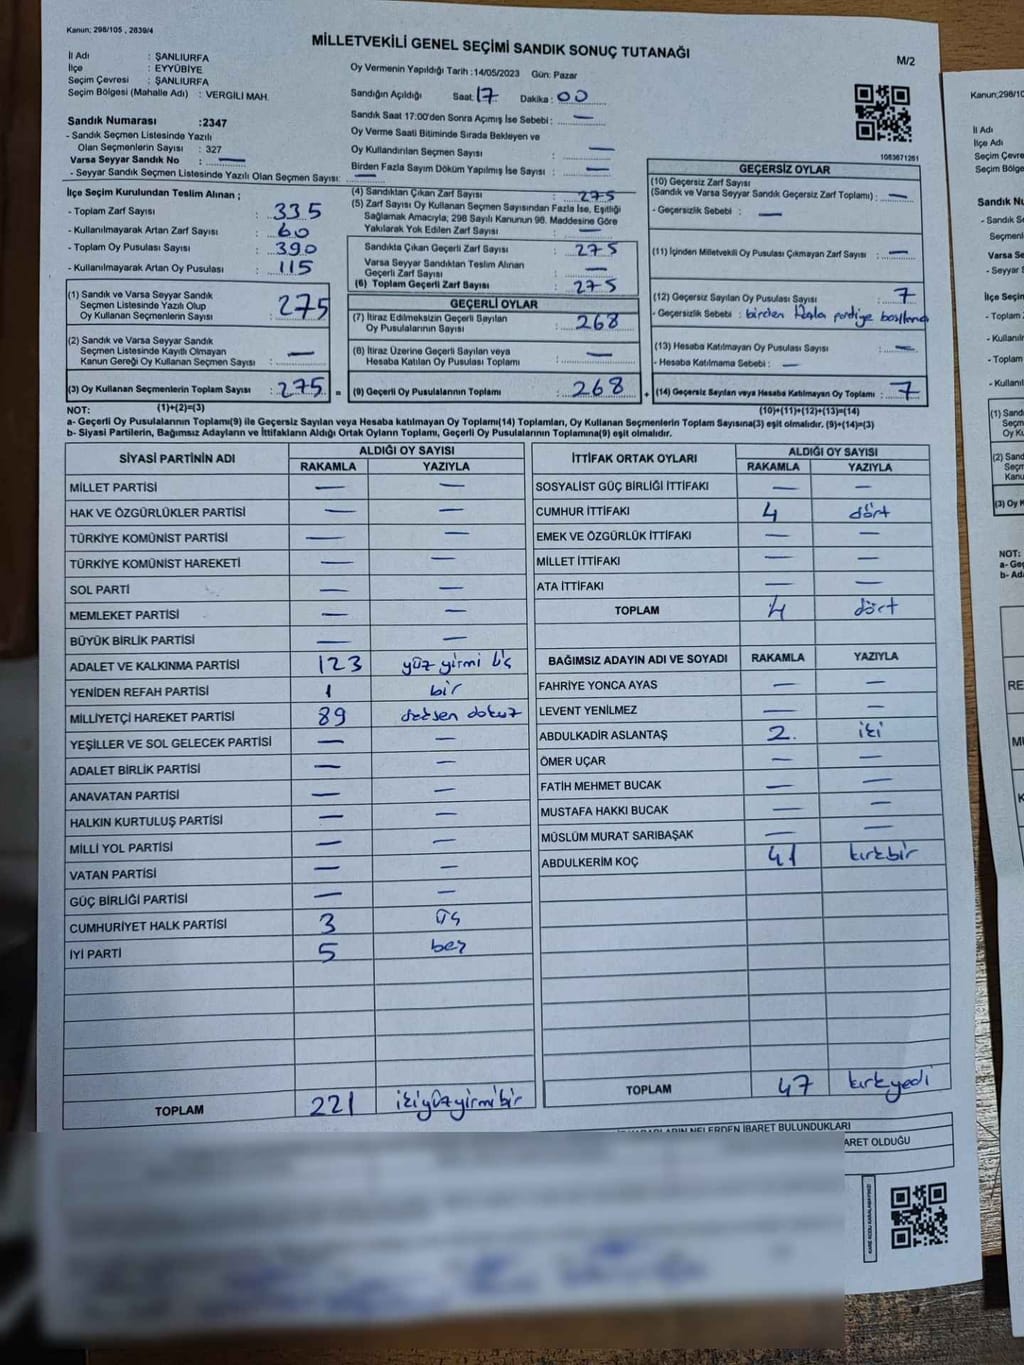 Kanun; 298/105 , 2839/4
MİLLETVEKİLİ GENEL SEÇİMİ SANDIK SONUÇ TUTANAĞI
M/2
İl Adı : ŞANLIURFA
İlçe : EYYÜBİYE
Seçim Çevresi : ŞANLIURFA
Seçim Bölgesi (Mahalle Adı) : VERGİLİ MAH.
Sandık Numarası :2347
- Sandık Seçmen Listesinde Yazılı
Olan Seçmenlerin Sayısı : 327
Varsa Seyyar Sandık No : —
- Seyyar Sandık Seçmen Listesinde Yazılı Olan Seçmen Sayısı: —
Oy Vermenin Yapıldığı Tarih :14/05/2023 Gün: Pazar
Sandığın Açıldığı Saat: 17 Dakika : 00
Sandık Saat 17:00'den Sonra Açımış İse Sebebi : —
Oy Verme Saati Bitiminde Sırada Bekleyen ve
Oy Kullandırılan Seçmen Sayısı : —
Birden Fazla Sayım Döküm Yapılmış İse Sayısı : —
1083671261
İlçe Seçim Kurulundan Teslim Alınan ;
- Toplam Zarf Sayısı : 335
- Kullanılmayarak Artan Zarf Sayısı : 60
- Toplam Oy Pusulası Sayısı : 390
- Kullanılmayarak Artan Oy Pusulası : 115
(1) Sandık ve Varsa Seyyar Sandık
Seçmen Listesinde Yazılı Olup
Oy Kullanan Seçmenlerin Sayısı : 275
(2) Sandık ve Varsa Seyyar Sandık
Seçmen Listesinde Kayıtlı Olmayan
Kanun Gereği Oy Kullanan Seçmen Sayısı : —
(3) Oy Kullanan Seçmenlerin Toplam Sayısı : 275 =
(4) Sandıktan Çıkan Zarf Sayısı : 275
(5) Zarf Sayısı Oy Kullanan Seçmen Sayısından Fazla İse, Eşitliği
Sağlamak Amacıyla; 298 Sayılı Kanunun 98. Maddesine Göre
Yakılarak Yok Edilen Zarf Sayısı : —
Sandıkta Çıkan Geçerli Zarf Sayısı : 275
Varsa Seyyar Sandıktan Teslim Alınan
Geçerli Zarf Sayısı : —
(6) Toplam Geçerli Zarf Sayısı : 275
GEÇERLİ OYLAR
(7) İtiraz Edilmeksizin Geçerli Sayılan
Oy Pusulalarının Sayısı : 268
(8) İtiraz Üzerine Geçerli Sayılan veya
Hesaba Katılan Oy Pusulası Toplamı : —
(9) Geçerli Oy Pusulalarının Toplamı : 268 +
GEÇERSİZ OYLAR
(10) Geçersiz Zarf Sayısı
(Sandık ve Varsa Seyyar Sandık Geçersiz Zarf Toplamı) : —
- Geçersizlik Sebebi : —
(11) İçinden Milletvekili Oy Pusulası Çıkmayan Zarf Sayısı : —
(12) Geçersiz Sayılan Oy Pusulası Sayısı : 7
- Geçersizlik Sebebi : birden fazla partiye
(13) Hesaba Katılmayan Oy Pusulası Sayısı : —
- Hesaba Katılmama Sebebi : —
(14) Geçersiz Sayılan veya Hesaba Katılmayan Oy Toplamı : 7
NOT: (1)+(2)=(3) (10)+(11)+(12)+(13)=(14)
a- Geçerli Oy Pusulalarının Toplamı(9) ile Geçersiz Sayılan veya Hesaba katılmayan Oy Toplamı(14) Toplamları, Oy Kullanan Seçmenlerin Toplam Sayısına(3) eşit olmalıdır. (9)+(14)=(3)
b- Siyasi Partilerin, Bağımsız Adayların ve İttifakların Aldığı Ortak Oyların Toplamı, Geçerli Oy Pusulalarının Toplamına(9) eşit olmalıdır.
SİYASİ PARTİNİN ADI ALDIĞI OY SAYISI
RAKAMLA YAZIYLA
MİLLET PARTİSİ — —
HAK VE ÖZGÜRLÜKLER PARTİSİ — —
TÜRKİYE KOMÜNİST PARTİSİ — —
TÜRKİYE KOMÜNİST HAREKETİ — —
SOL PARTİ — —
MEMLEKET PARTİSİ — —
BÜYÜK BİRLİK PARTİSİ — —
ADALET VE KALKINMA PARTİSİ 123 yüz yirmi üç
YENİDEN REFAH PARTİSİ 1 bir
MİLLİYETÇİ HAREKET PARTİSİ 89 seksen dokuz
YEŞİLLER VE SOL GELECEK PARTİSİ — —
ADALET BİRLİK PARTİSİ — —
ANAVATAN PARTİSİ — —
HALKIN KURTULUŞ PARTİSİ — —
MİLLİ YOL PARTİSİ — —
VATAN PARTİSİ — —
GÜÇ BİRLİĞİ PARTİSİ — —
CUMHURİYET HALK PARTİSİ 3 üç
İYİ PARTİ 5 beş
TOPLAM 221 ikiyüzyirmibir
İTTİFAK ORTAK OYLARI ALDIĞI OY SAYISI
RAKAMLA YAZIYLA
SOSYALİST GÜÇ BİRLİĞİ İTTİFAKI — —
CUMHUR İTTİFAKI 4 dört
EMEK VE ÖZGÜRLÜK İTTİFAKI — —
MİLLET İTTİFAKI — —
ATA İTTİFAKI — —
TOPLAM 4 dört
BAĞIMSIZ ADAYIN ADI VE SOYADI RAKAMLA YAZIYLA
FAHRİYE YONCA AYAS — —
LEVENT YENİLMEZ — —
ABDULKADİR ASLANTAŞ 2. iki
ÖMER UÇAR — —
FATİH MEHMET BUCAK — —
MUSTAFA HAKKI BUCAK — —
MÜSLÜM MURAT SARIBAŞAK — —
ABDULKERİM KOÇ 41 kırkbir
TOPLAM 47 kırkyedi
NELERDEN İBARET BULUNDUKLARI
OLDUĞU
Kanun;298/10
İl Adı
İlçe Adı
Seçim Çevre
Seçim Bölge
Sandık Nu
- Sandık S
Seçmenl
Varsa Se
- Seyyar S
İlçe Seçim
- Toplam
- Kullanılm
- Toplam
- Kullanıl
(1) Sand
Seçm
Oy Ku
(2) Sand
Seçm
Kanu
(3) Oy K
NOT:
a- Geç
b- Ad
RE